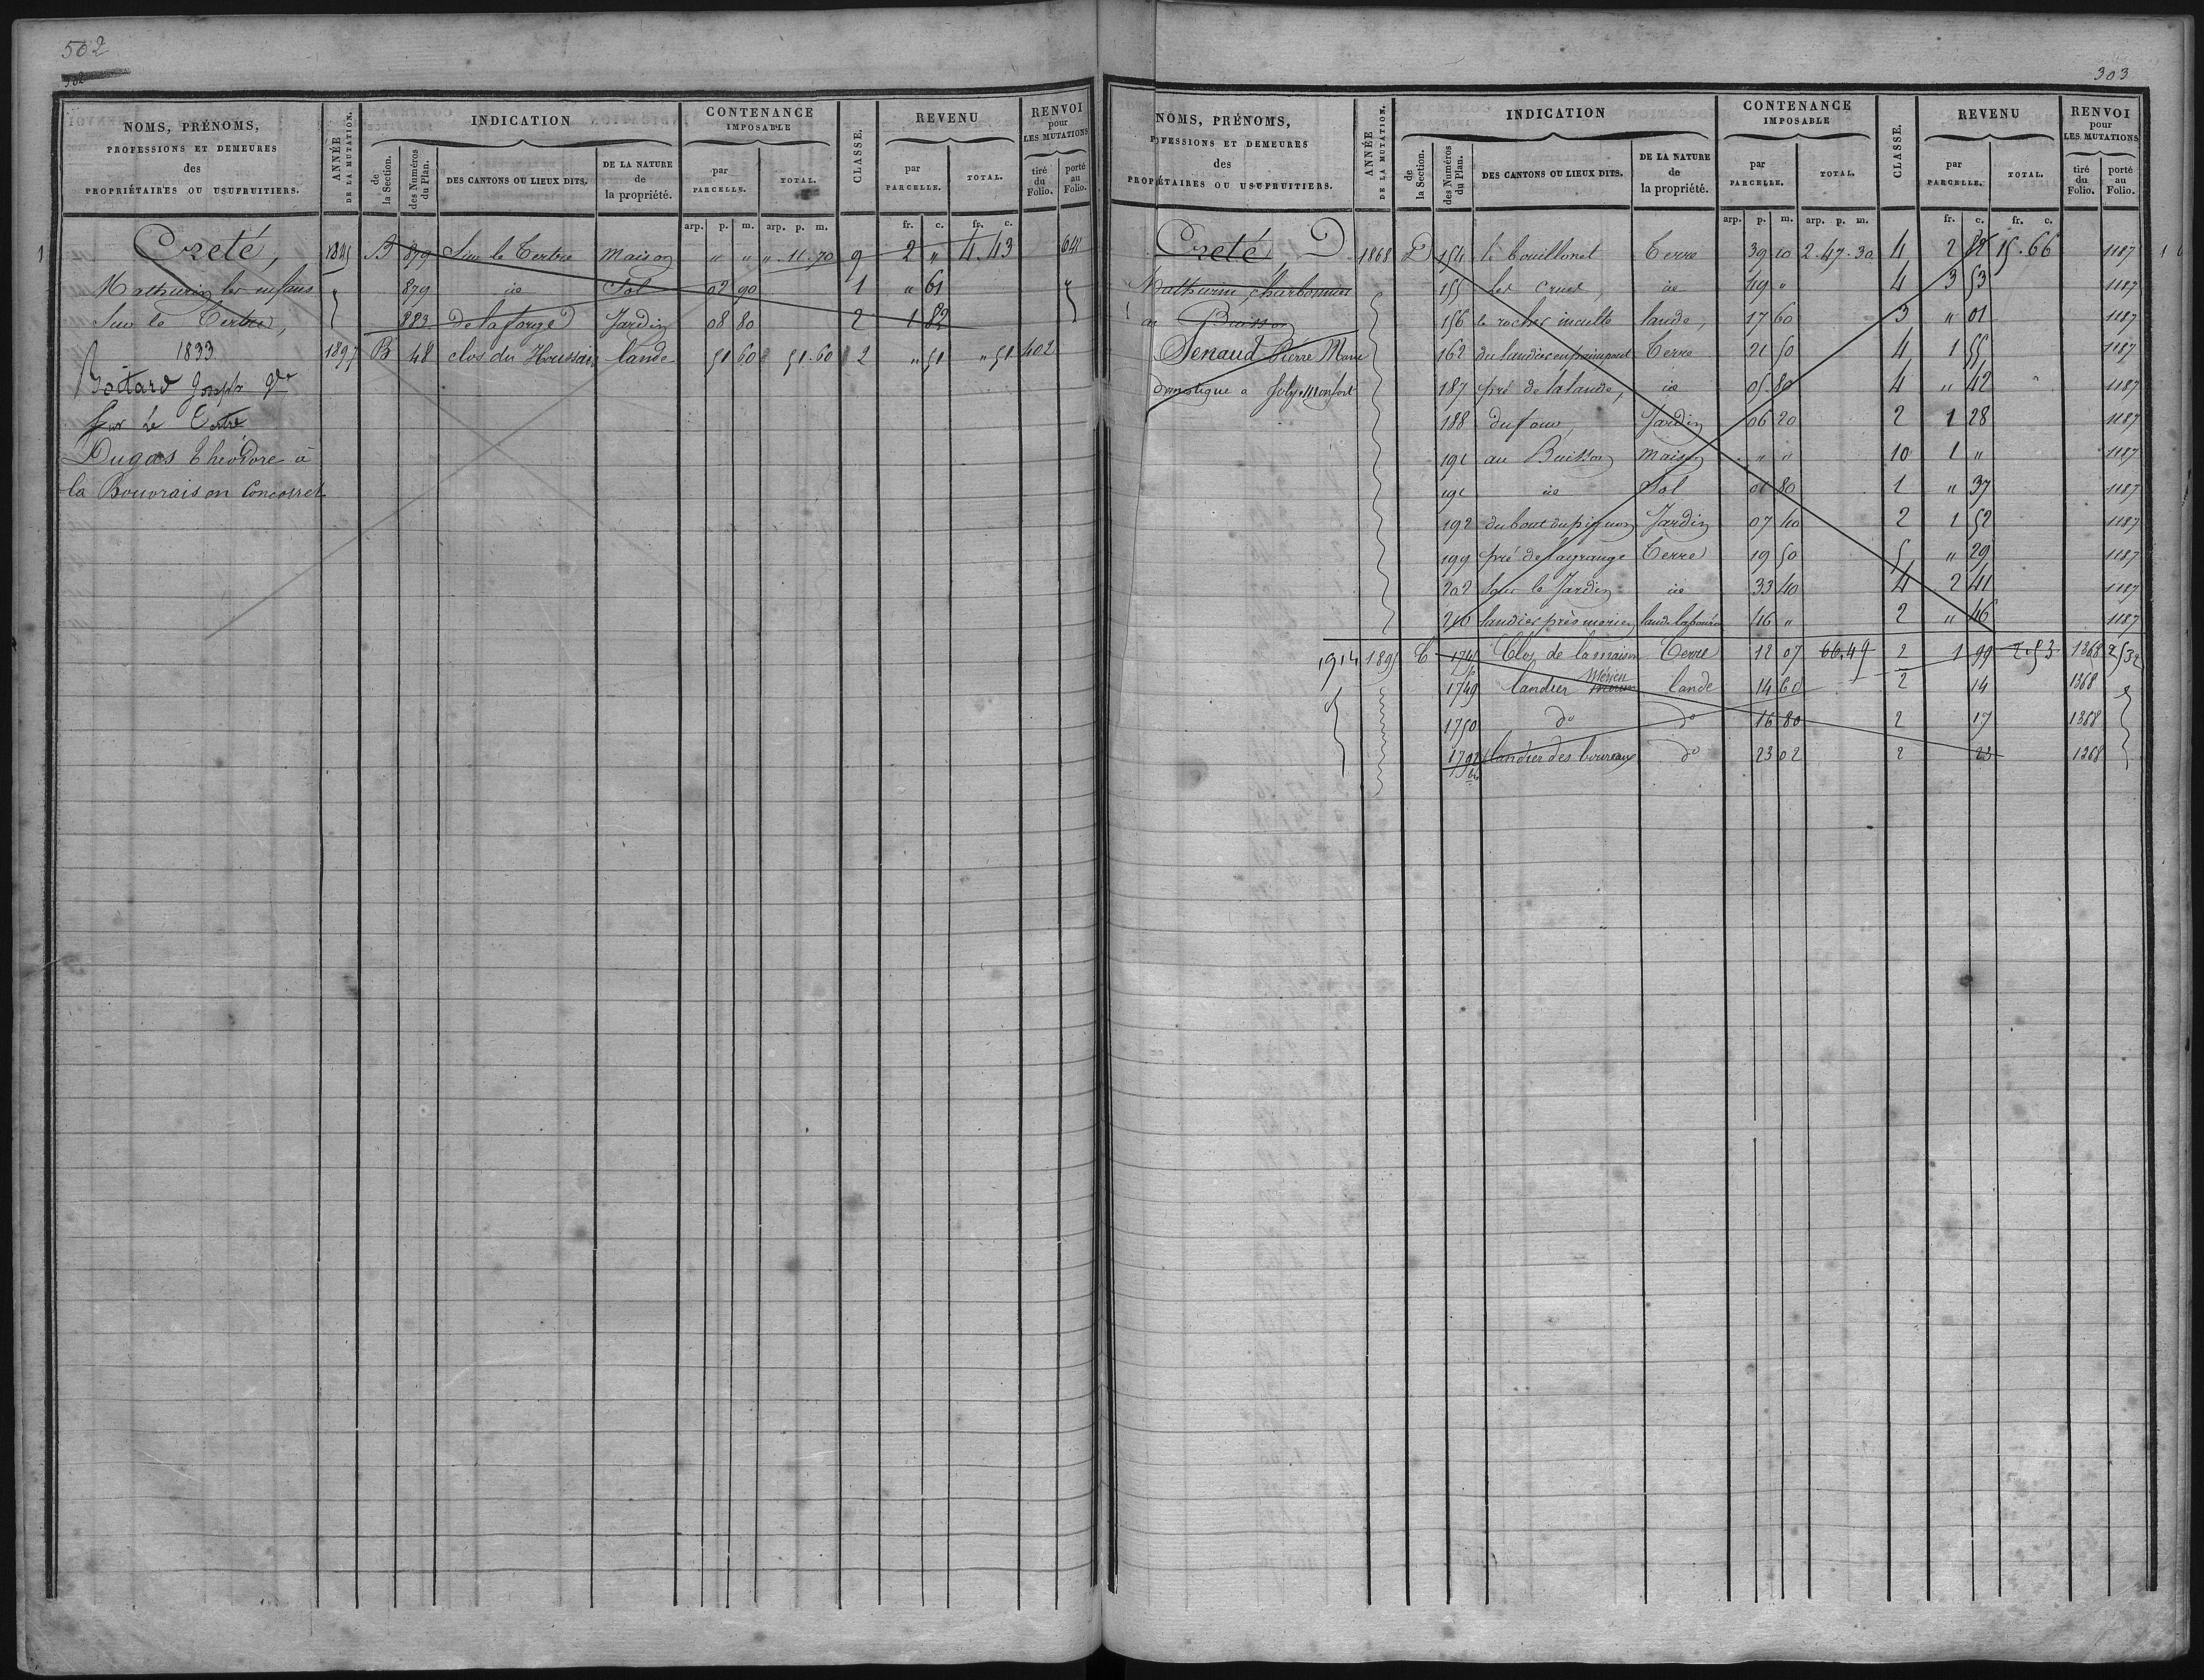 502
NOMS, PRÉNOMS,
PROFESSIONS ET DEMEURES
des
PROPRIÉTAIRES OU USUFRUITIERS.
ANNÉE
DE LA MUTATION.
INDICATION
de
la Section.
des Numéros
du Plan.
DES CANTONS OU LIEUX DITS.
DE LA NATURE
de
la propriété.
CONTENANCE
IMPOSABLE
par
PARCELLE.
TOTAL.
CLASSE.
REVENU
par
PARCELLE.
TOTAL.
RENVOI
pour
LES MUTATIONS
tiré
du
Folio.
porté
au
Folio.
arp. p. m. arp. p. m. fr. c. fr. c.
1 Creté, B 879 Sur le Tertre Maison " " " 11.70 9 2 " 4.43 641
Mathurin les enfans " 879 id Sol 02 90 1 " 61 "
Sur le Tertre, 883 de la forge Jardin 08 80 2 1 82
1833 1897 B 48 clos du Houssais lande 51 60 51.60 2 " 51 " 51 402
Boitard Joseph
sur le Tertre
Dugas Théodore à
la Bouvrais en Concoret
303
NOMS, PRÉNOMS,
FESSIONS ET DEMEURES
des
PROPRIÉTAIRES OU USUFRUITIERS.
ANNÉE
DE LA MUTATION.
INDICATION
de
la Section.
des Numéros
du Plan.
DES CANTONS OU LIEUX DITS.
DE LA NATURE
de
la propriété.
CONTENANCE
IMPOSABLE
par
PARCELLE.
TOTAL.
CLASSE.
REVENU
par
PARCELLE.
TOTAL.
RENVOI
pour
LES MUTATIONS
tiré
du
Folio.
porté
au
Folio.
arp. p. m. arp. p. m. fr. c. fr. c.
Creté, 1868 D 154 le bouillonet Terre 39 10 2.47.30 4 2 82 15.66 1187
Mathurin charbonnier 155 les Cruet, id 49 " 4 3 53 1187
au Buisson 156 le rocher inculte lande, 17 60 3 " 01 1187
Senaud Pierre Marie 162 du landier en Terre 21 50 4 1 55 1187
domestique a Monfort 187 pré de la lande, id 05 80 4 " 42 1187
188 du four, Jardin 06 20 2 1 28 1187
191 au Buisson Maison " " 10 1 " 1187
191 id Sol 01 80 1 " 37 1187
192 du bout du pignon Jardin 07 40 2 1 52 1187
199 pré de la grange Terre 19 50 5 " 29 1187
202 sous le Jardin id 33 40 4 2 41 1187
216 landier près lande labourée 46 " 2 " 46 1187
1914 1895 C 1745 Clos de la maison Terre 12 07 66.49 2 1 99 2.53 1368 2532
1749 landier Mérieu lande 14 60 2 14 1368
1750 do do 16 80 2 17 1368
1792 landier des do 23 02 2 23 1368